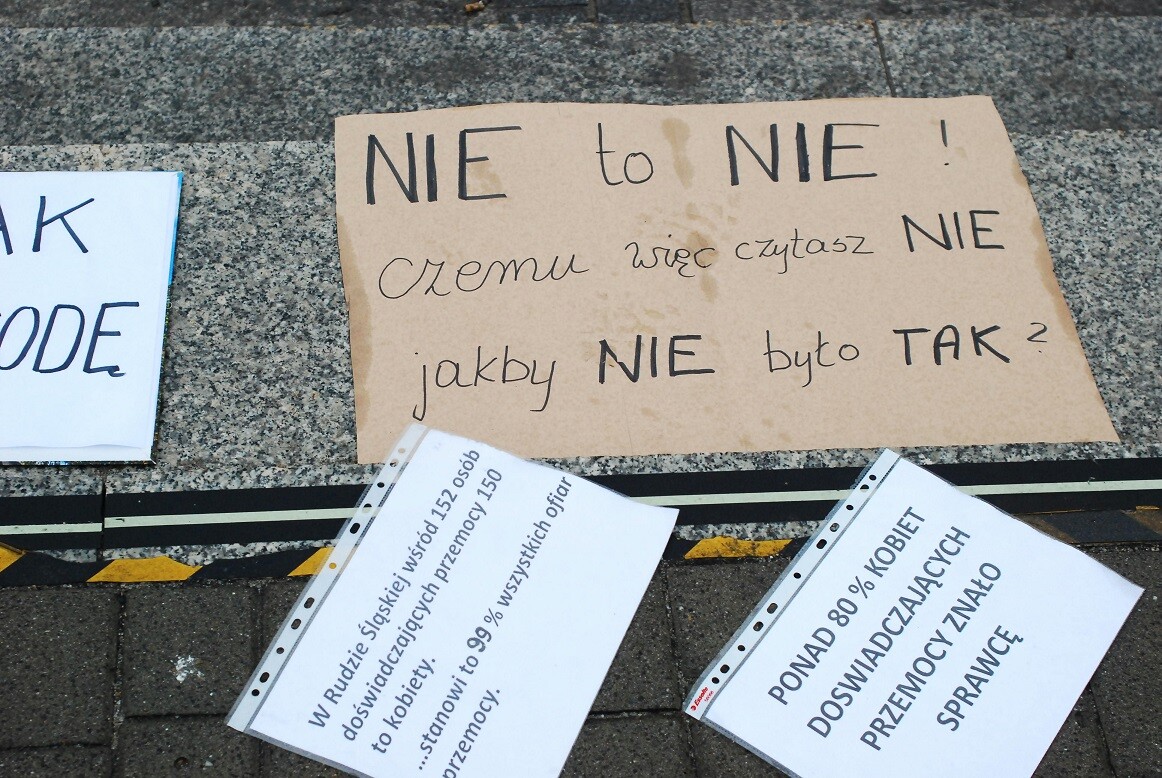 AK
ODĘ
NIE to NIE !
czemu więc czytasz NIE
jakby NIE było TAK ?
W Rudzie Śląskiej wśród 152 osób
doświadczających przemocy 150
to kobiety.
...stanowi to 99 % wszystkich ofiar
przemocy.
PONAD 80 % KOBIET
DOSWIADCZAJĄCYCH
PRZEMOCY ZNAŁO
SPRAWCĘ
Esselte